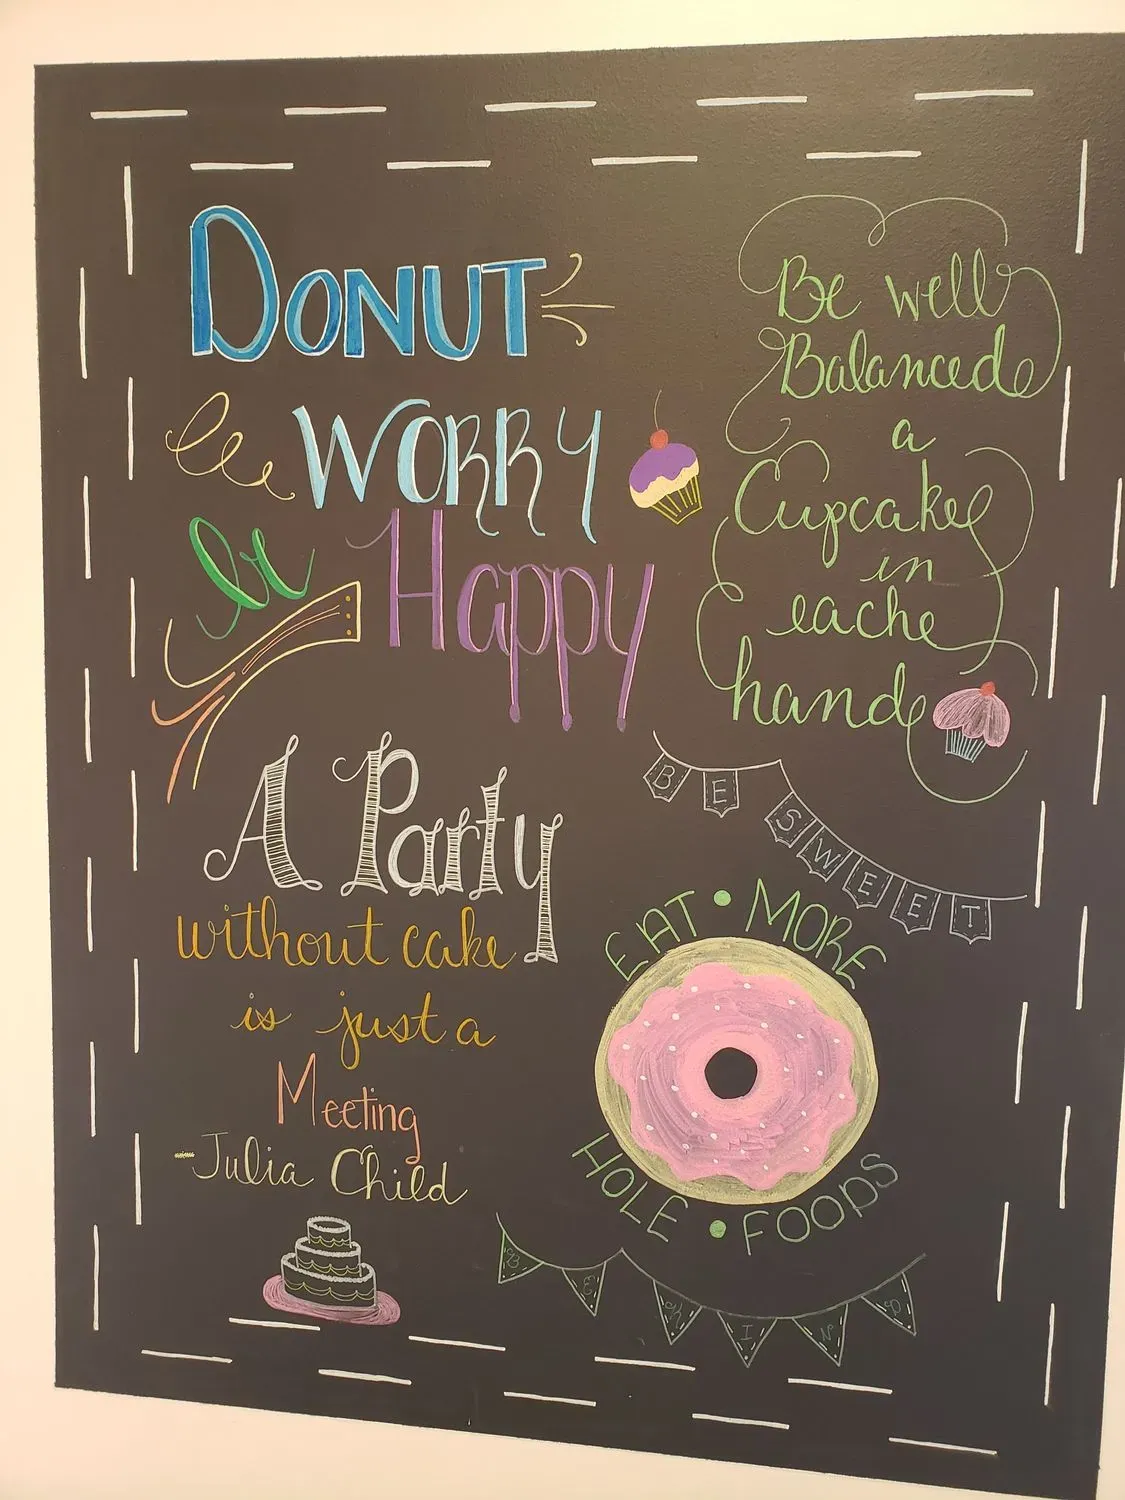 DONUT
WORRY
be
Happy
Be well
Balanced
a
Cupcake
in
eache
hand
A Party
without cake
is just a
Meeting
-Julia Child
BE SWEET
EAT • MORE
HOLE • FOODS
BE KIND